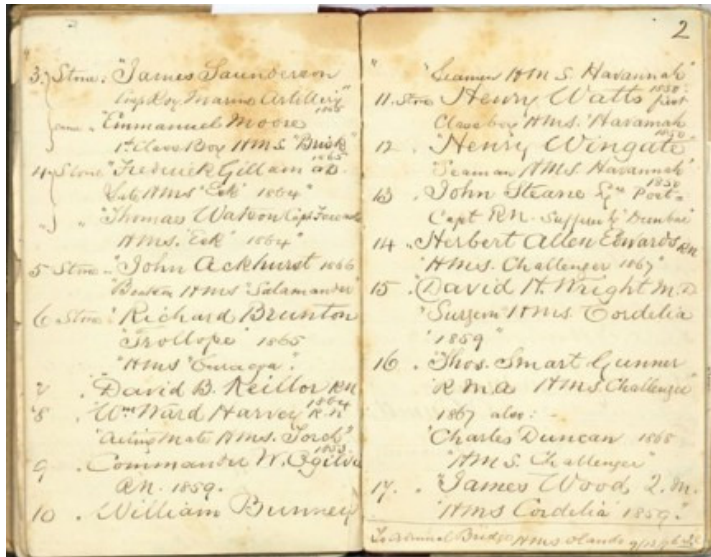 3. Stone. "James Saunderson
Roy Marine Artillery"
1865
same "Emmanuel Moore
1st Class Boy HMS "Brisk"
1865
4 Stone "Frederick Gillam AB.
late HMS "Esk" 1864"
" " "Thomas Watson Capt
HMS. "Esk" 1864"
5 Stone. "John Ackhurst 1866
HMS "Salamander"
6 Stone. "Richard Brunton
Trollope" 1865
"HMS "Curacoa".
7 . David B. Keillor RN
1864
8 . Wm Ward Harvey R.N
"Acting Mate HMS. Torch"
1855
9 . Commander W. Ogilvie
RN. 1859.
10 . William Bunney
2
" "Seaman HMS. Havannah"
1850.
11. Stone Henry Watts first
Class boy HMS. Havannah
1850
12 . "Henry Wingate
Seaman HMS. Havannah"
1850
13 . John Steane Post-
Capt RN. "Dunbar"
14 . Herbert Allen Edwards RN
"HMS. Challenger 1867"
15 . David H. Wright M.D
"Surgeon" HMS Cordelia
"1859"
16 . Thos. Smart Gunner
R.M.A HMS. Challenger"
1867 also: -
"Charles Duncan 1868
"HMS. Challenger"
17. . "James Wood Q.M.
"HMS Cordelia 1859."
HMS